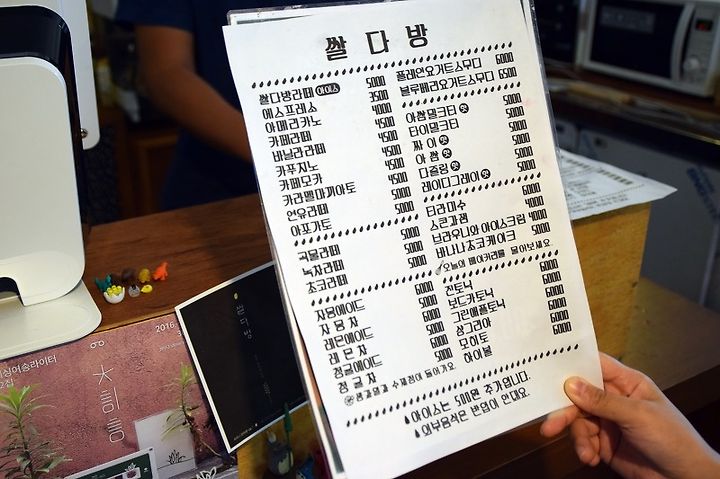 쌀다방
쌀다방라떼 아이스 5000
에스프레소 3500
아메리카노 4000
카페라떼 4500
바닐라라떼 4500
카푸치노 4500
카페모카 4500
카라멜마끼아또 4500
연유라떼 5000
아포가토 5000
곡물라떼 5000
녹차라떼 5000
초코라떼 5000
자몽에이드 6000
자몽차 5000
레몬에이드 6000
레몬차 5000
청귤에이드 6000
청귤차 5000
플레인요거트스무디 6000
블루베리요거트스무디 6500
아쌈밀크티 핫 5000
타이밀크티 5000
짜이 핫 5000
아쌈 핫 5000
다즐링 핫 5000
레이디그레이 핫 5000
티라미수 6000
스콘과잼 4000
브라우니와 아이스크림 4000
바나나초코케이크 5000
오늘의 베이커리를 물어보세요
진토닉 6000
보드카토닉 6000
그린애플토닉 6000
상그리아 6000
모히토 6000
하이볼 6000
아이스는 500원 추가입니다.
외부음식은 반입이 안돼요.
쌀다방
2016
싱어송라이터